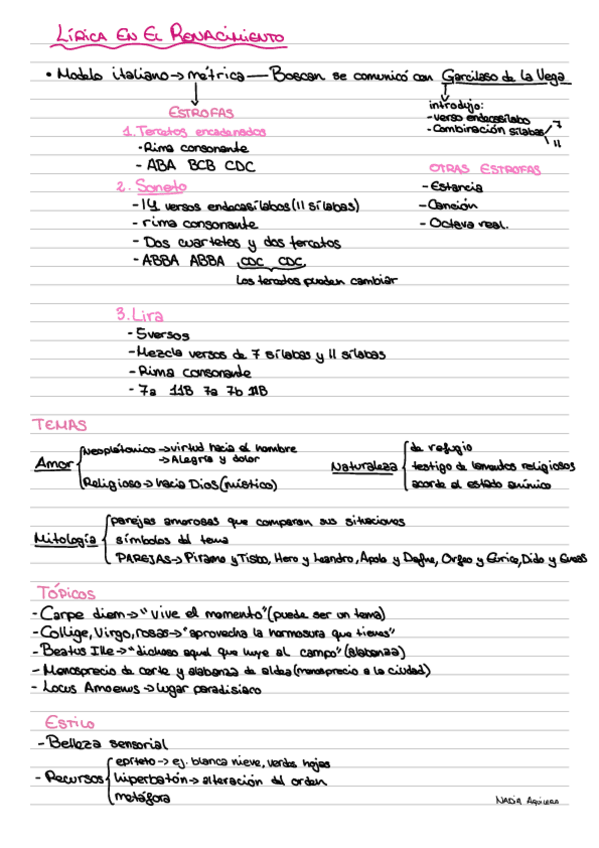 LÍRICA EN EL RENACIMIENTO
• Modelo italiano → métrica — Boscan se comunicó con Garcilaso de la Vega
ESTROFAS
introdujo:
- verso endecasílabo
- Combinación sílabas 7
11
1. Tercetos encadenados
- Rima consonante
- ABA BCB CDC
OTRAS ESTROFAS
- Estancia
- Canción
- Octava real.
2. Soneto
- 14 versos endecasílabos (11 sílabas)
- rima consonante
- Dos cuartetos y dos tercetos
- ABBA ABBA CDC CDC
Los tercetos pueden cambiar
3. Lira
- 5 versos
- Mezcla versos de 7 sílabas y 11 sílabas
- Rima consonante
- 7a 11B 7a 7b 11B
TEMAS
Amor
Neoplátonico → virtud hacia el hombre
→ Alegría y dolor
Religioso → hacia Dios (místico)
Naturaleza
de refugio
testigo de lamentos religiosos
acorde al estado anímico
Mitología
parejas amorosas que comparan sus situaciones
símbolos del tema
PAREJAS → Píramo y Tisbo, Hero y Leandro, Apolo y Dafne, Orfeo y Eurice, Dido y Eneas
TÓPICOS
- Carpe diem → "vive el momento" (puede ser un tema)
- Collige, Virgo, rosas → "aprovecha la hermosura que tienes"
- Beatus Ille → "dichoso aquel que huye al campo" (alabanza)
- Menosprecio de corte y alabanza de aldea (menosprecio a la ciudad)
- Locus Amoenus → lugar paradisiaco
ESTILO
- Belleza sensorial
- Recursos
epíteto → ej. blanca nieve, verdes hojas
hiperbatón → alteración del orden
metáfora
NADIA AGUILERA